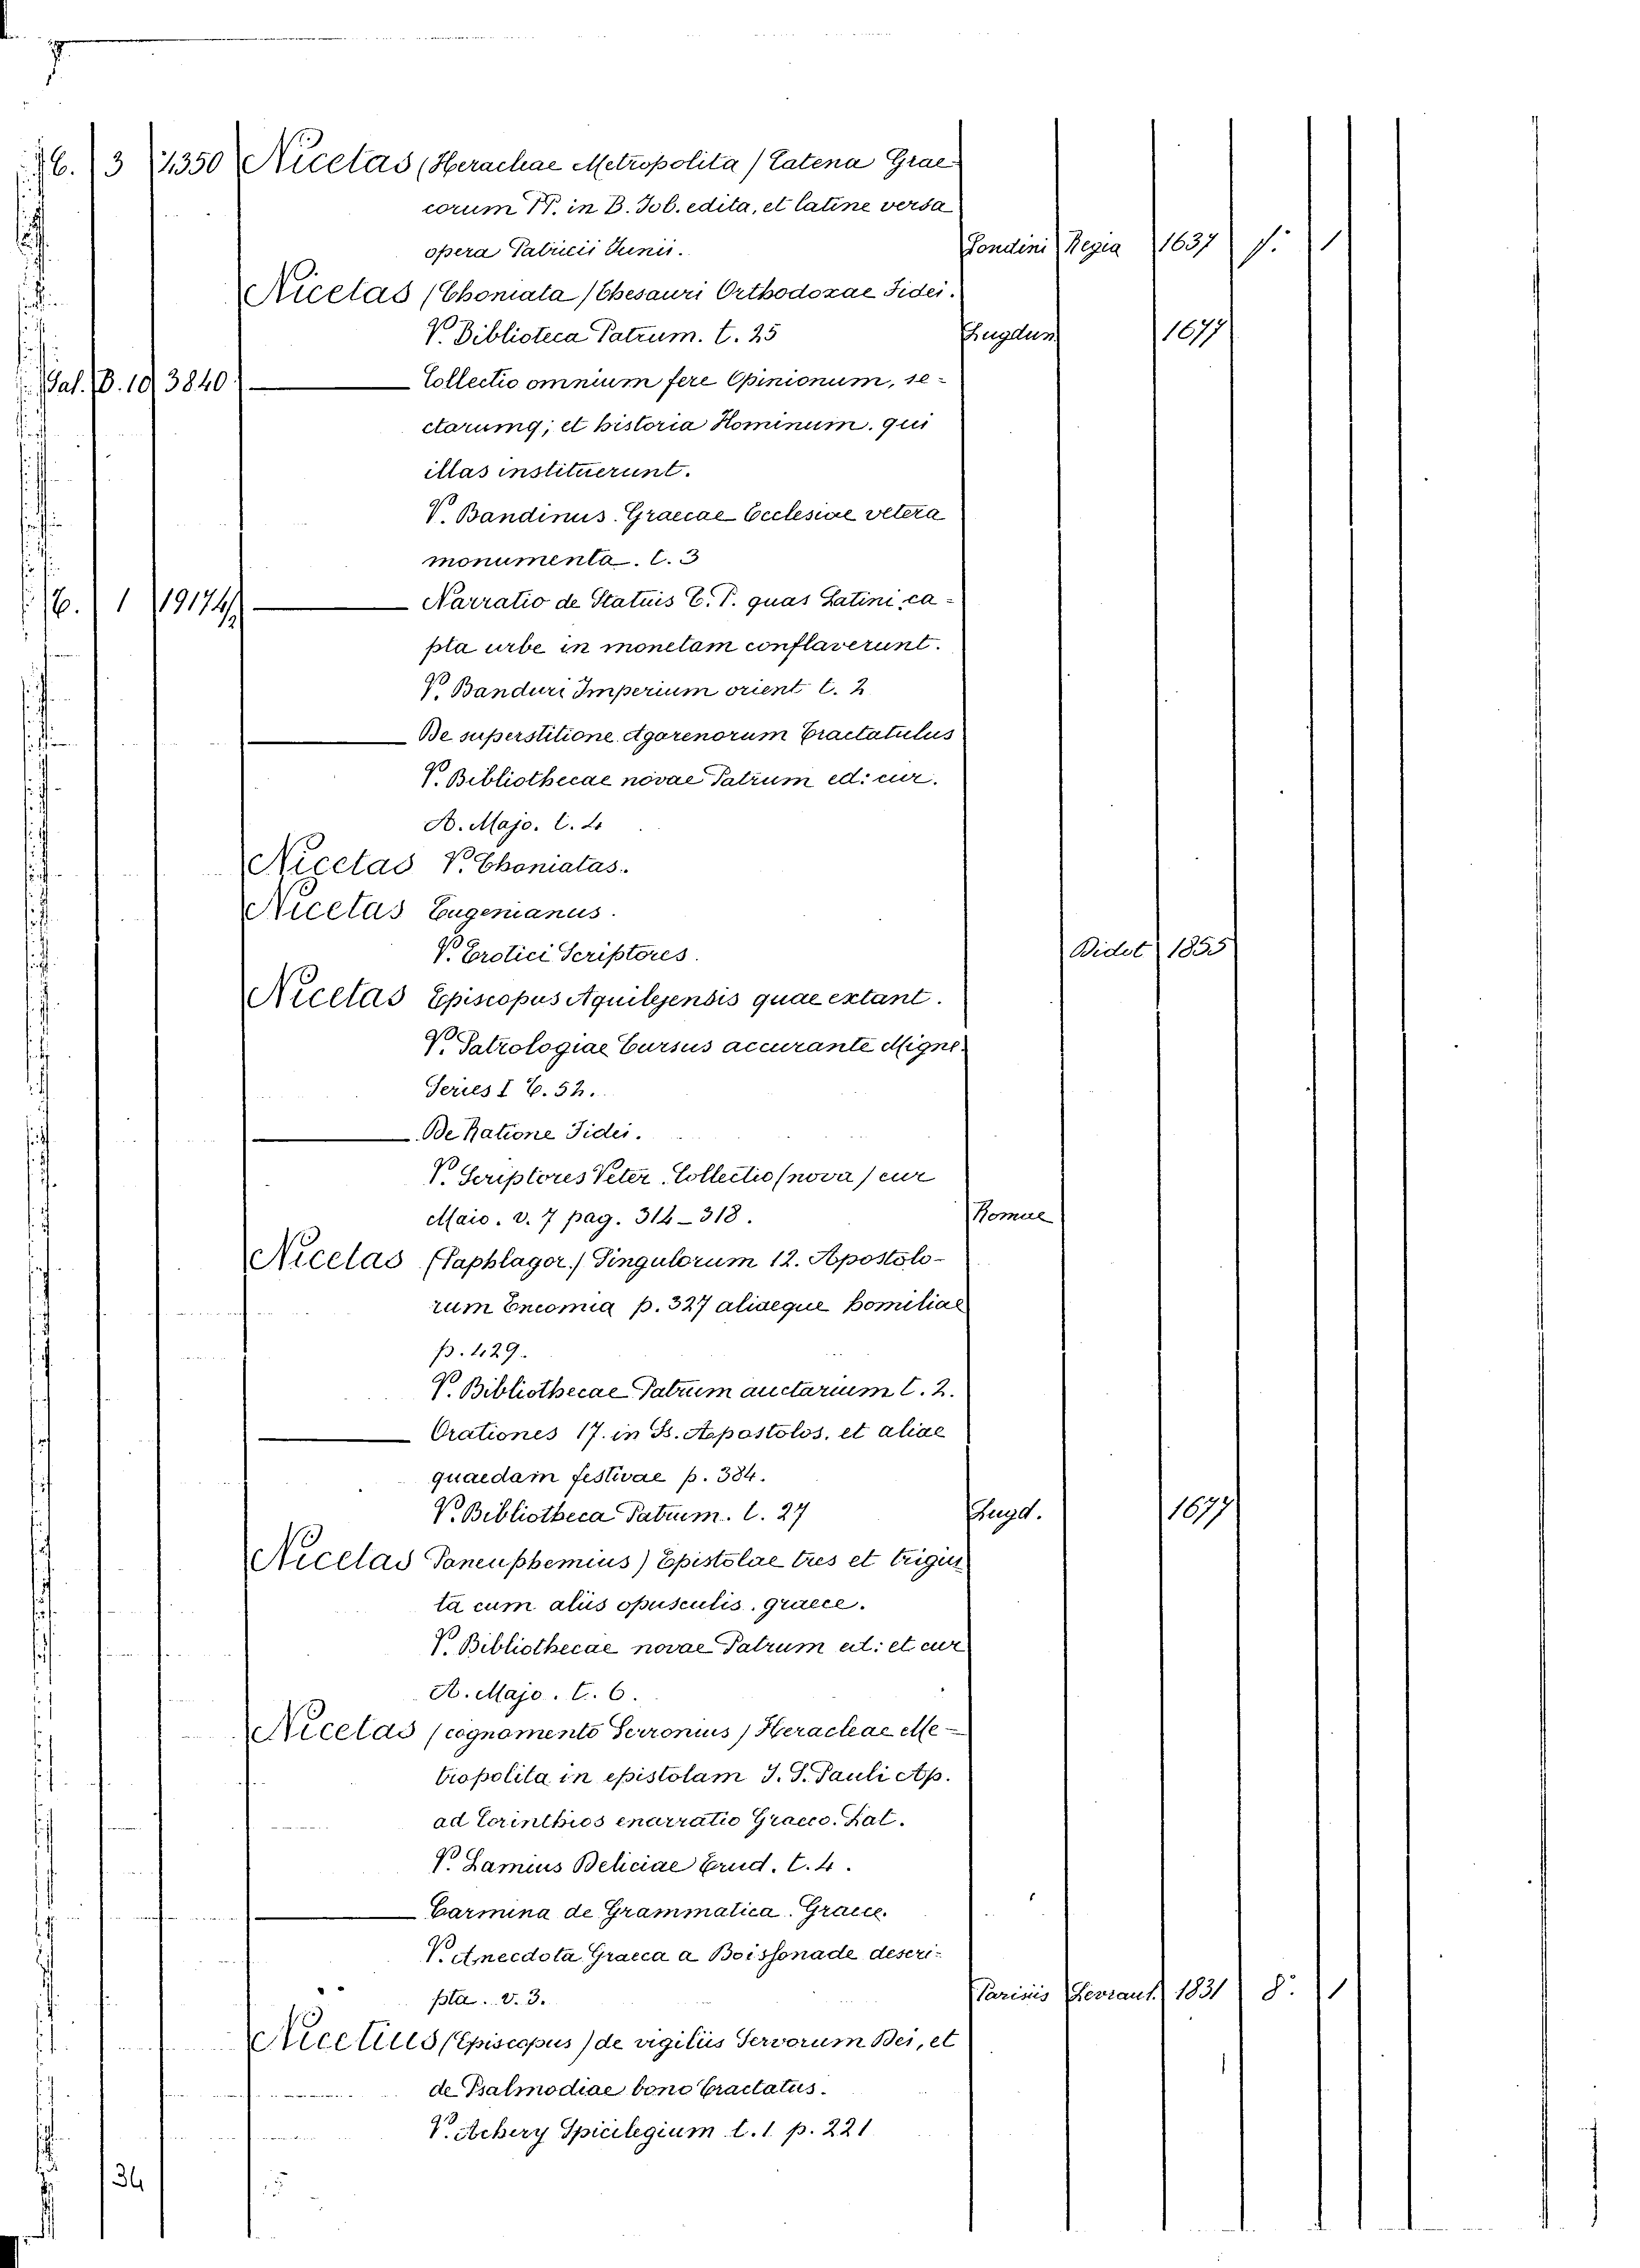 C. 3 4350 Nicetas (Heracleae Metropolita) Catena Grae
corum PP. in B. Job. edita, et latine versa
opera Patricii Junii. Londini Regia 1637 f. 1
Nicetas (Choniata) Thesauri Orthodoxae Fidei.
V. Biblioteca Patrum. t. 25 Lugdun 1677
Gal. B. 10 3840 Collectio omnium fere Opinionum, se-
ctarumq; et historia Hominum. qui
illas instituerunt.
V. Bandinus. Graecae Ecclesiae vetera
monumenta. t. 3
C. 1 19174 Narratio de Statuis C. P. quas Latini, ca-
pta urbe in monetam conflaverunt.
V. Banduri Imperium orient t. 2
De superstitione Agarenorum Tractatulus
V. Bibliothecae novae Patrum ed: cur.
A. Majo. t. 4
Nicetas V. Choniatas.
Nicetas Eugenianus.
V. Erotici Scriptores. Didot 1855
Nicetas Episcopus Aquilejensis quae extant.
V. Patrologiae Cursus accurante Migne.
Series I T. 52.
De Ratione Fidei.
V. Scriptores Veter. Collectio (nova) cur
Maio. v. 7 pag. 314-318. Romae
Nicetas (Paphlagor.) Singulorum 12. Apostolo-
rum Encomia p. 327 aliaeque homiliae
p. 429.
V. Bibliothecae Patrum auctarium t. 2.
Orationes 17. in S. Apostolos, et aliae
quaedam festivae p. 384.
V. Bibliotheca Patrum. t. 27 Lugd. 1677
Nicetas Paneuphemius) Epistolae tres et trigin
ta cum aliis opusculis. graece.
V. Bibliothecae novae Patrum ed: et cur
A. Majo. t. 6.
Nicetas (cognomento Serronius) Heracleae Me-
tropolita in epistolam I. S. Pauli Ap.
ad Corinthios enarratio Graeco. Lat.
V. Lamius Deliciae Erud. t. 4.
Carmina de Grammatica. Graece.
V. Anecdota Graeca a Boissonade descri-
pta. v. 3. Parisiis Levraut. 1831 8° 1
Nicetius (Episcopus) de vigiliis Servorum Dei, et
de Psalmodiae bono Tractatus.
V. Achery Spicilegium t. 1 p. 221
34